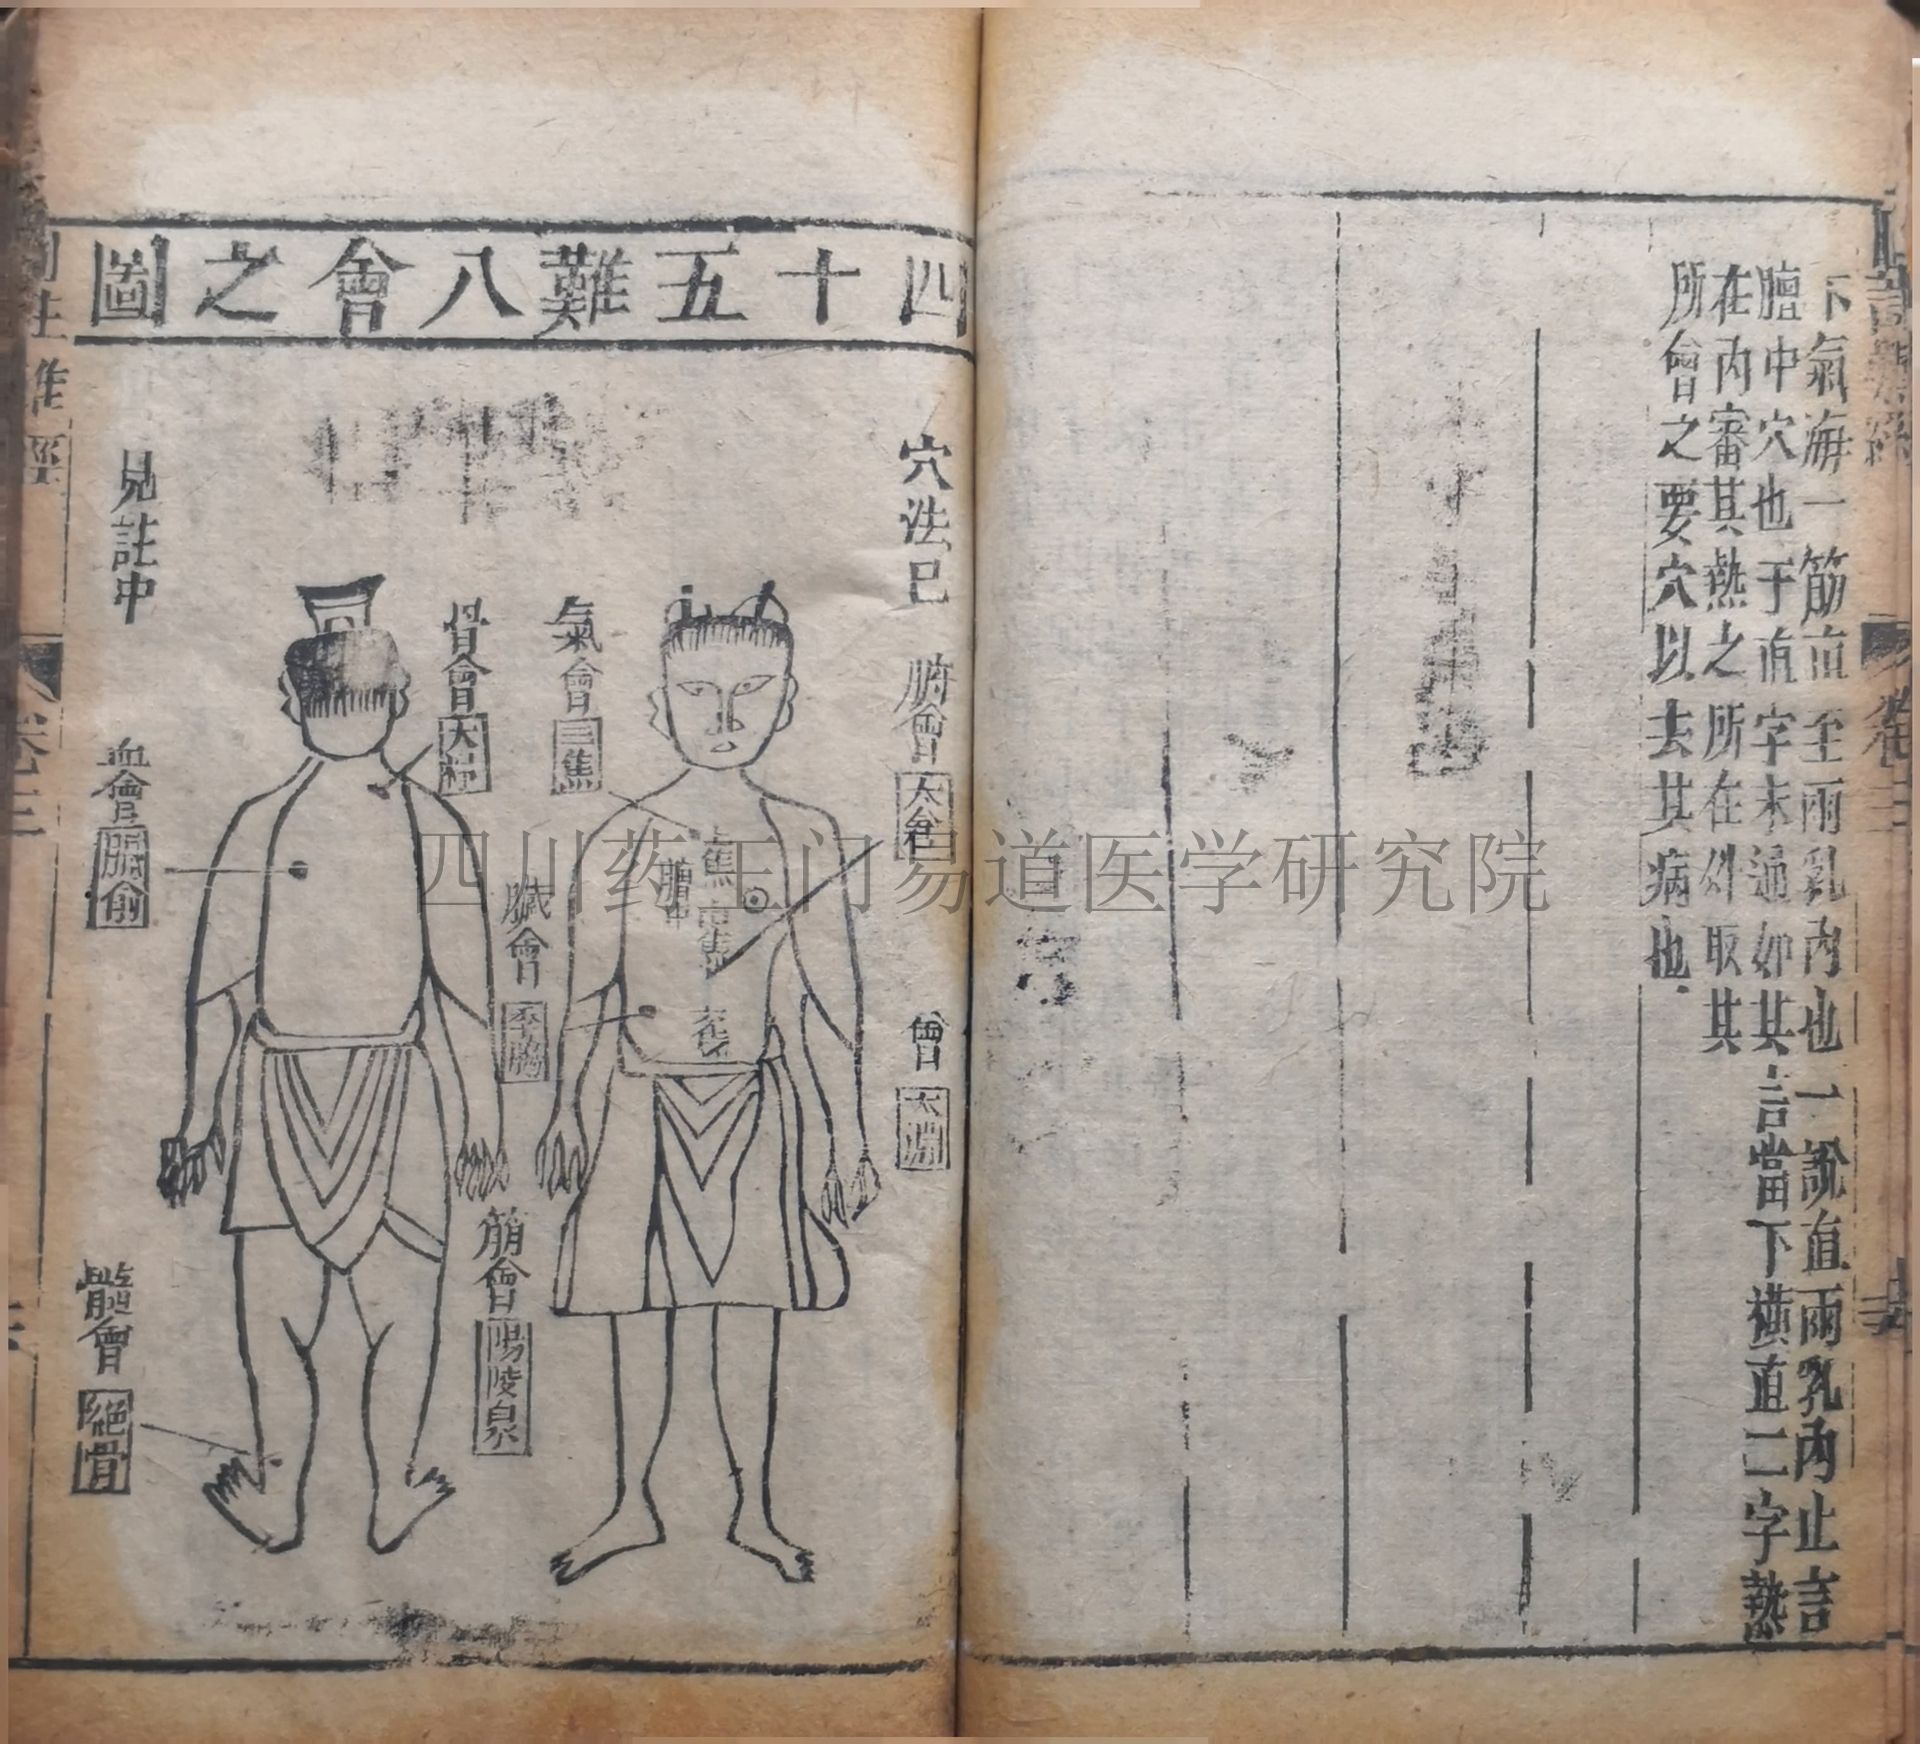 下氣海一筋直至兩乳內也一說直兩乳內止言
膻中穴也于直字未通如其言當下橫直二字熱
在內審其熱之所在外取其
所會之要穴以去其病也
四十五難八會之圖
穴法已
見註中
腑會
太倉
會
太淵
氣會
三焦
膻中
臟會
季脇
骨會
大杼
筋會
陽陵泉
血會
膈俞
髓會
絕骨
卷三
四川药王门易道医学研究院